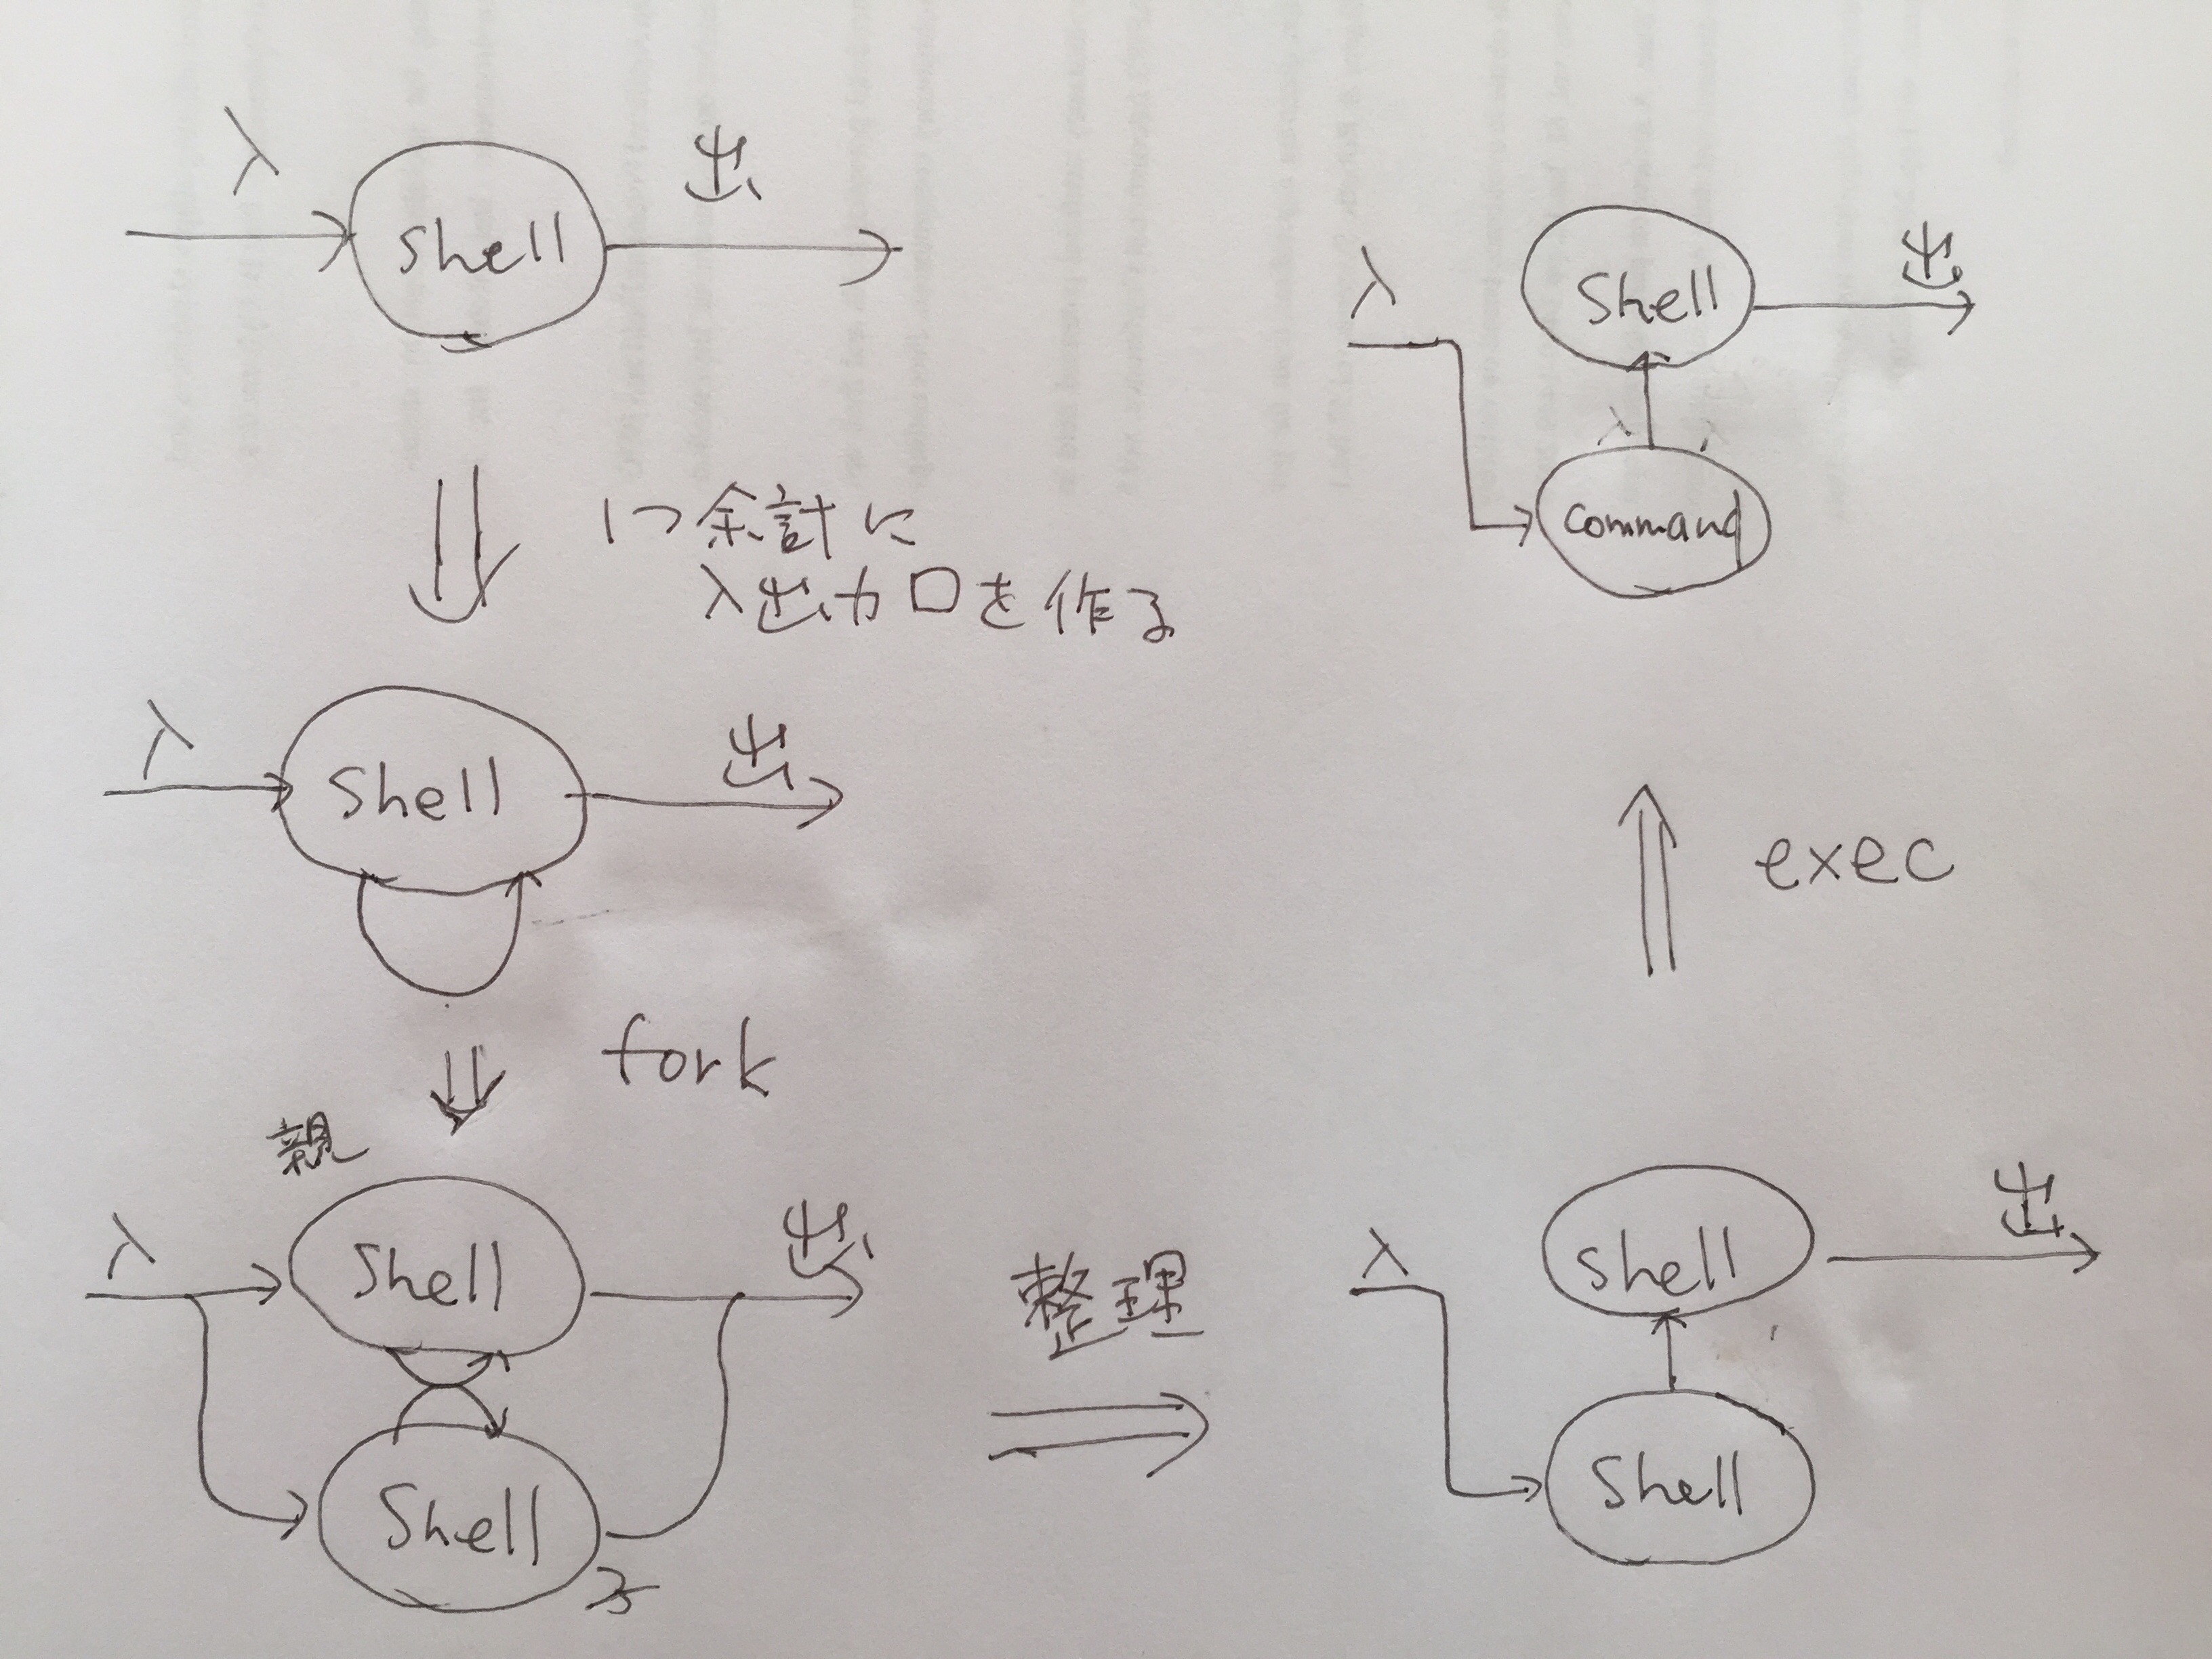 入
出
Shell
1つ余計に
入出力口を作る
入
出
Shell
fork
親
入
出
Shell
Shell
子
整理
入
出
Shell
Shell
exec
入
出
Shell
入
command